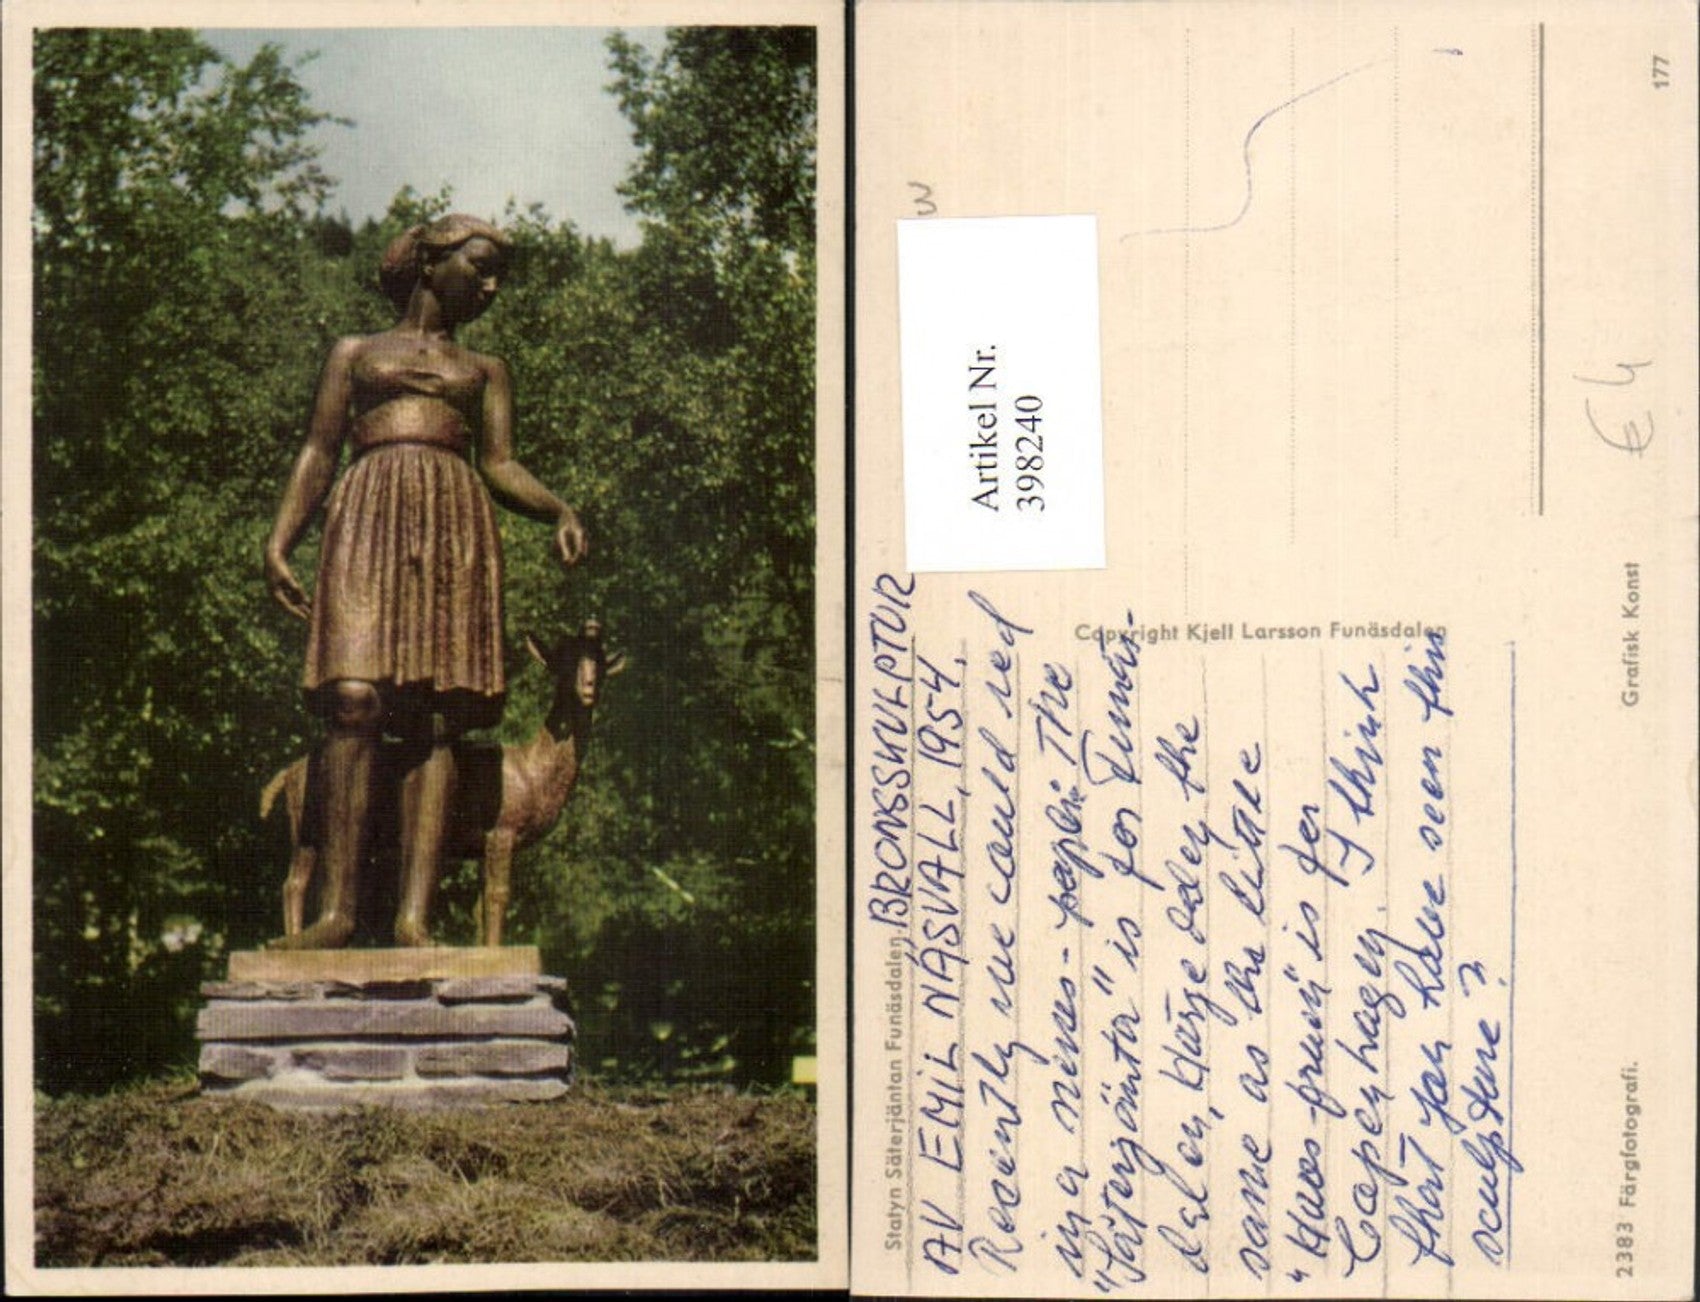 Statyn Säterjäntan Funäsdalen, BRONSSKULPTUR
AV EMIL NÄSVALL, 1954.
Recently we could red
in a news-paper: The
"Säterjänta" is for Funäs-
dalen, Härjedalen the
same as the little
"Haos-fruen" is for
Copenhagen. I think
that you have seen this
sculpture?
Copyright Kjell Larsson Funäsdalen
Artikel Nr.
398240
W
€ 4
2383 Färgfotografi.
Grafisk Konst
177